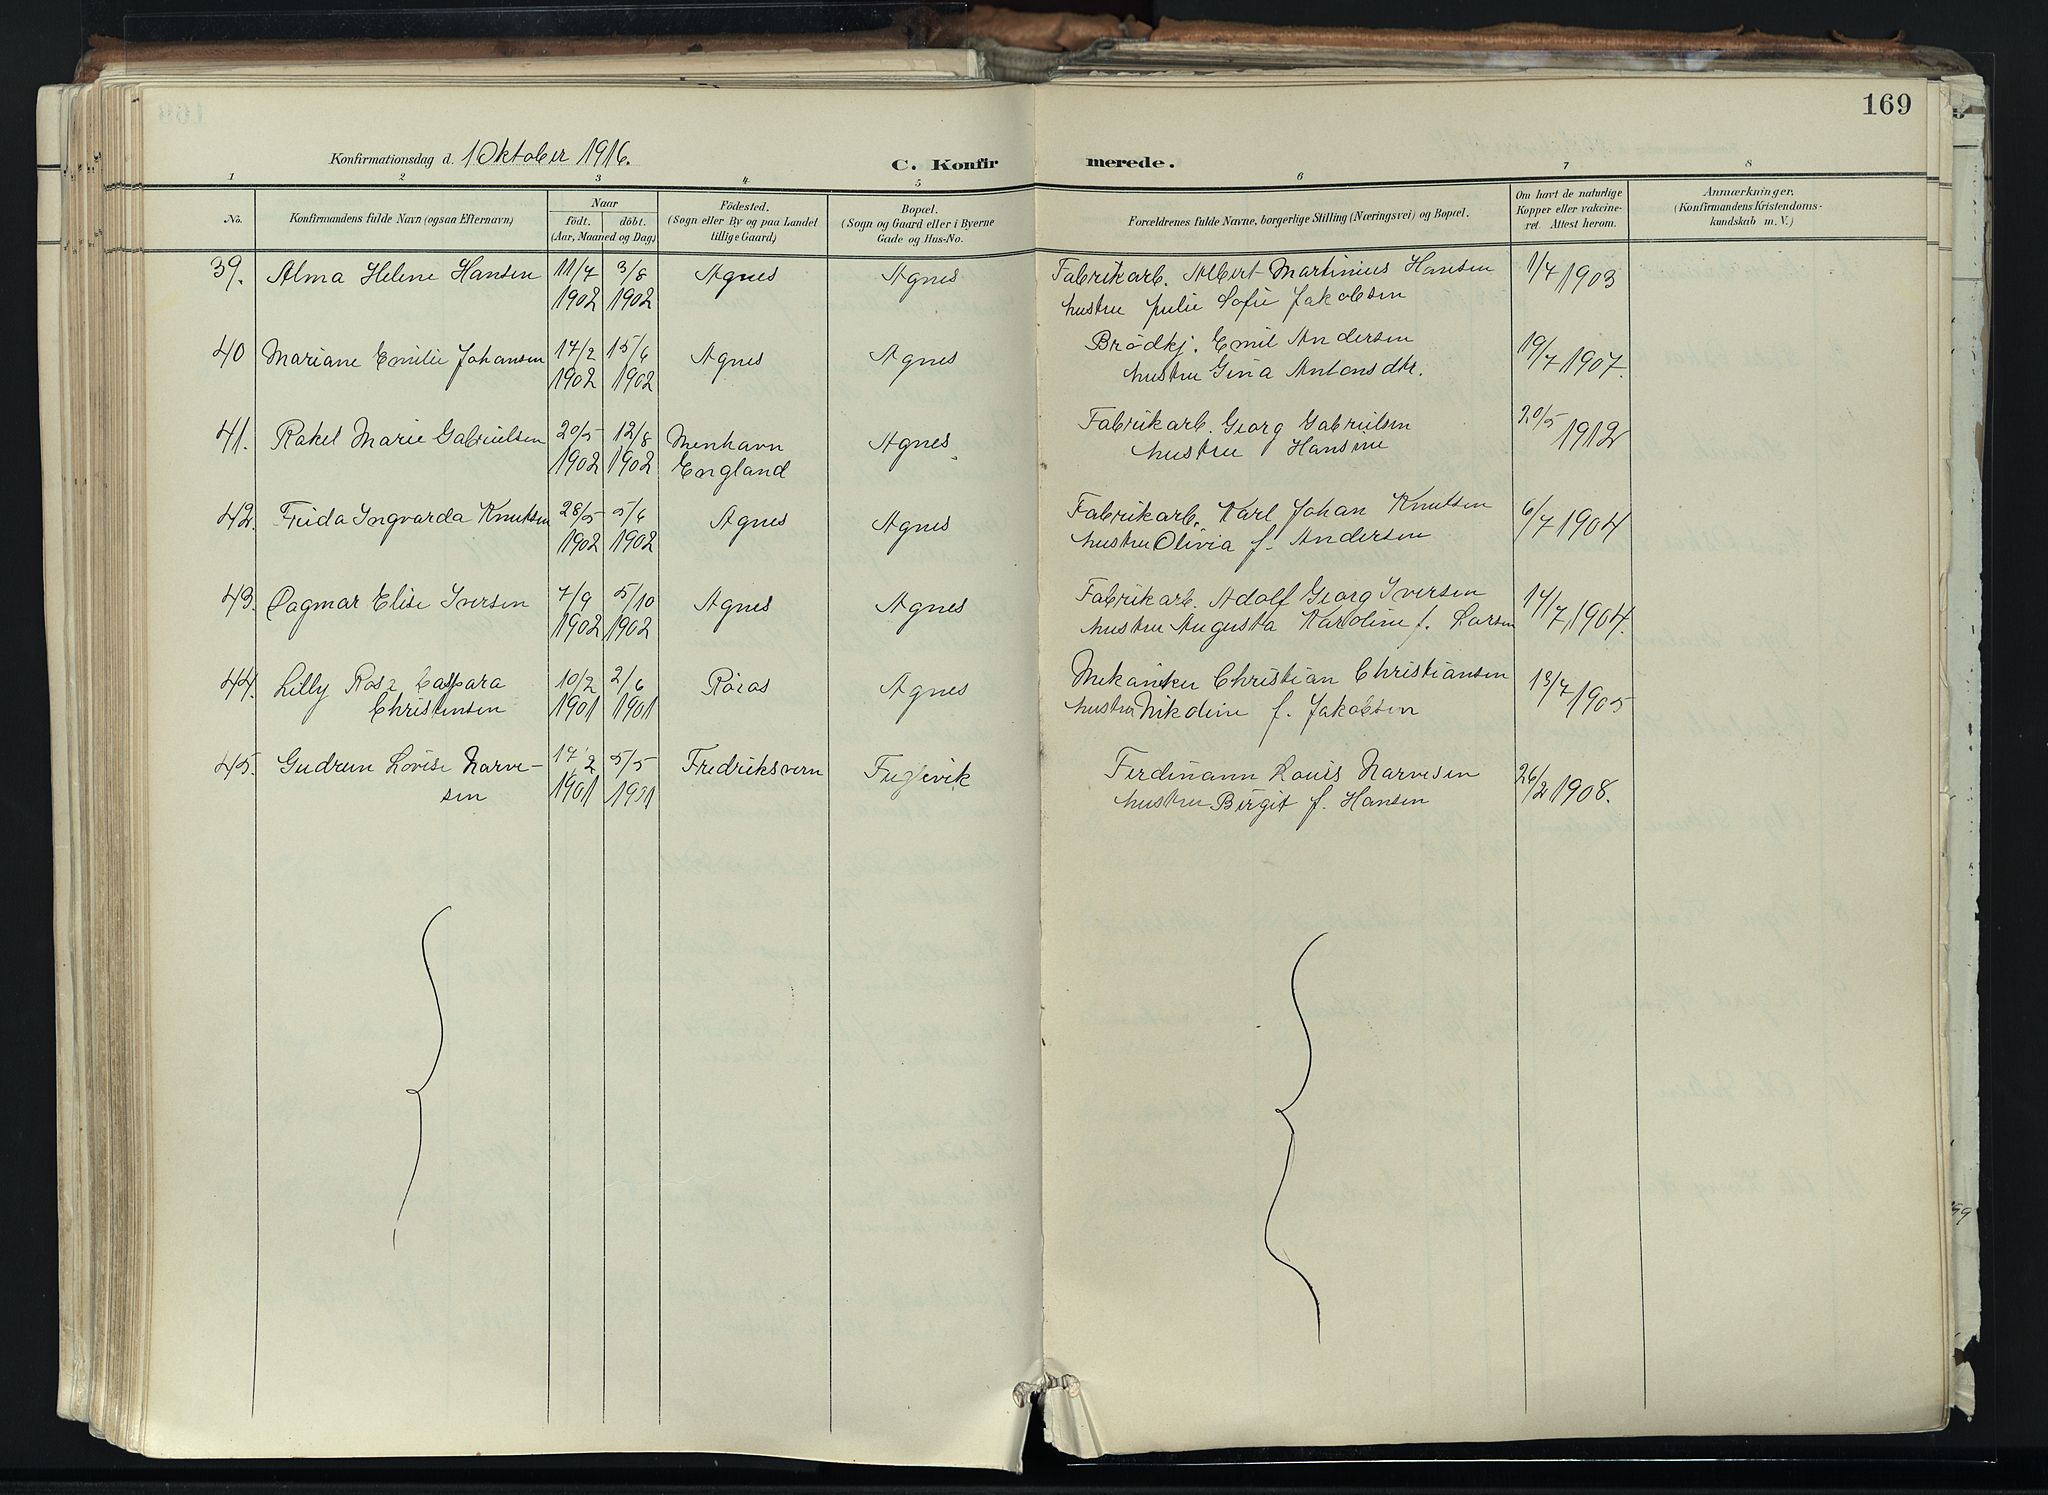 169
Konfirmationsdag d. 1 Oktober 1916.
C. Konfir merede.
1 2 3 4 5 6 7 8
No.
Konfirmandens fulde Navn (ogsaa Efternavn)
Naar
födt. döbt.
(Aar, Maaned og Dag)
Födested.
(Sogn eller By og paa Landet
tillige Gaard)
Bopæl.
(Sogn og Gaard eller i Byerne
Gade og Hus-No.
Forældrenes fulde Navne, borgerlige Stilling (Næringsvei) og Bopæl.
Om havt de naturlige
Kopper eller vakcine-
ret. Attest herom.
Anmærkninger.
(Konfirmandens Kristendoms-
kundskab m. V.)
39. Alma Helene Hansen 11/7 3/8 Agnes Agnes Fabrikarb. Albert Martinius Hansen 1/7 1903
1902 1902 hustru Julie Sofie Jakobsen
40 Mariane Emilie Johansen 17/2 15/6 Agnes Agnes Brødkj. Emil Andersen 19/7 1907.
1902 1902 hustru Gina Antonsdtr.
41. Rakel Marie Gabrielsen 20/5 12/8 Agnes Fabrikarb. Georg Gabrielsen 20/5 1912
1902 1902 England hustru Hansine
42. Frida Ingvarda Knutsen 28/5 5/6 Agnes Agnes Fabrikarb. Karl Johan Knutsen 6/7 1904
1902 1902 hustru Olivia f. Andersen
43. Dagmar Elise Iversen 7/9 5/10 Agnes Agnes Fabrikarb. Adolf Georg Iversen 14/7 1904.
1902 1902 hustru Augusta Karoline f. Larsen
44. Lilly Rosa Caspara 10/2 2/6 Agnes Mekaniker Christian Christiansen 13/7 1905
Christensen 1901 1901 hustru Nikoline f. Jakobsen
45. Gudrun Lovise Narve- 17/2 5/5 Fredriksvern Fuglevik Ferdinann Louis Narvesen 26/2 1908.
sen 1901 1901 hustru Birgit f. Hansen